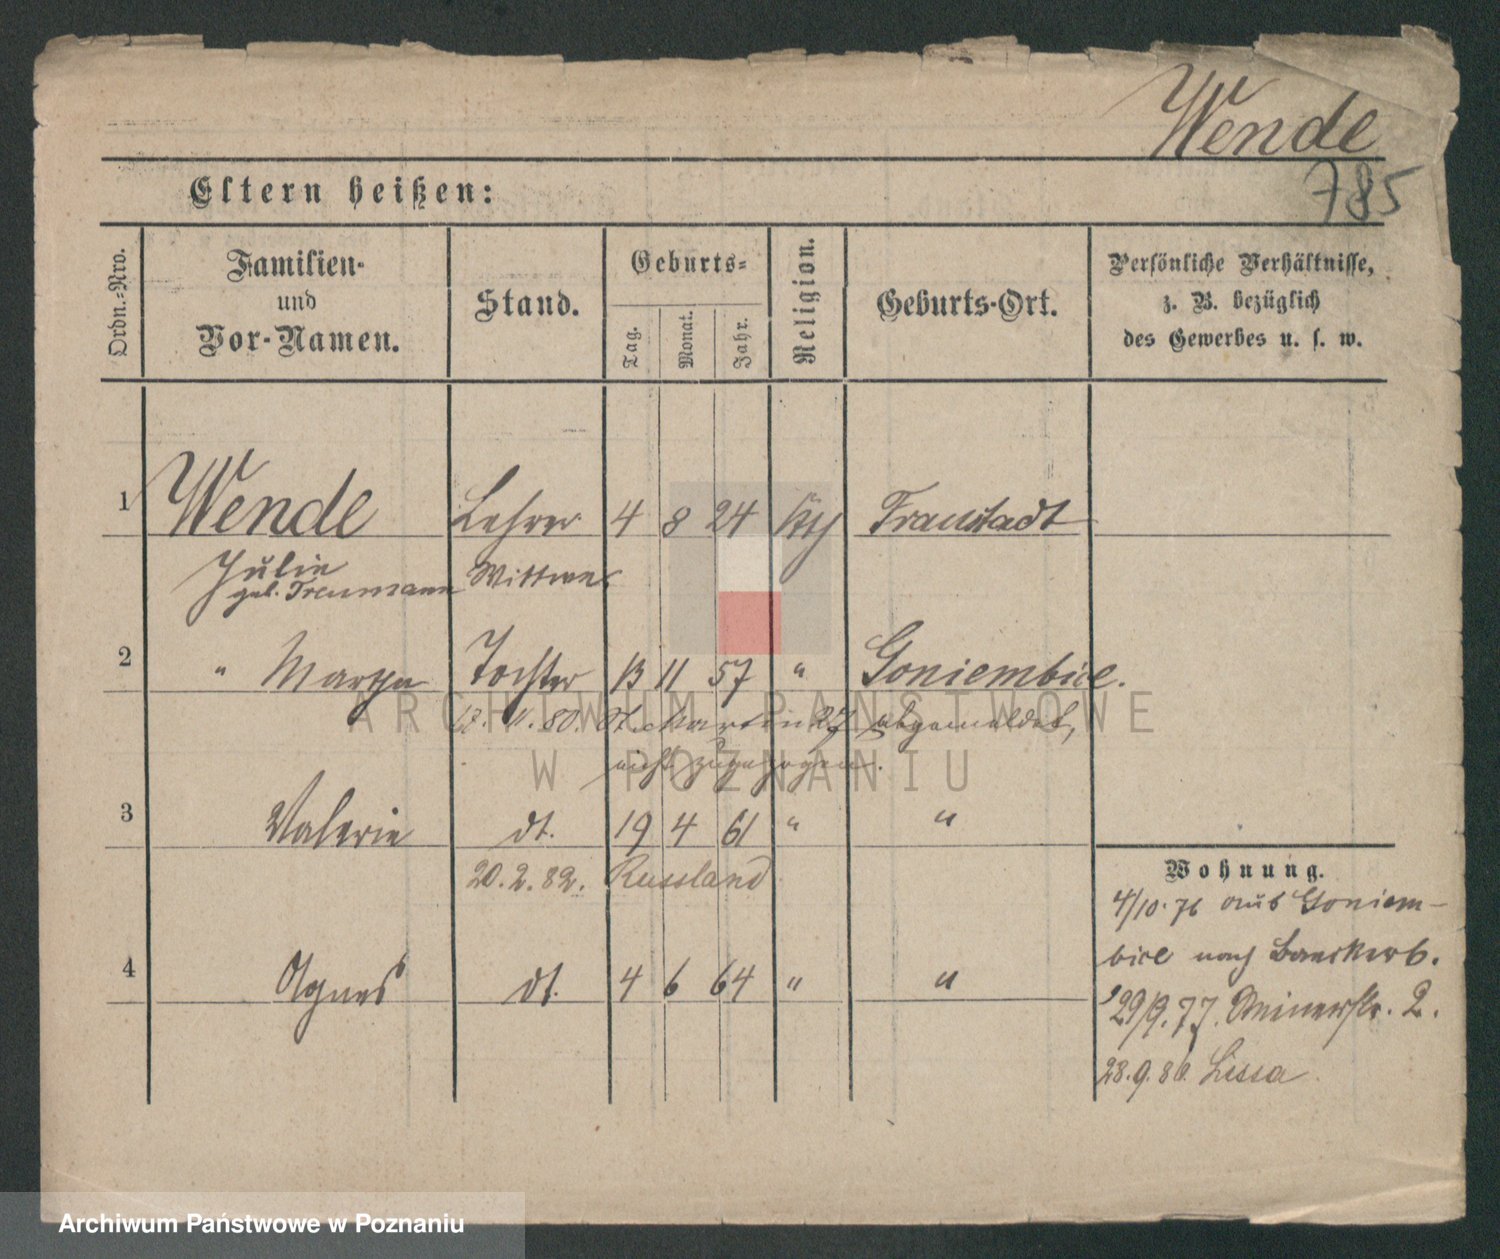 Wende
785
Eltern heißen:
Ordn.-Nro.
Familien- und Vor-Namen.
Stand.
Geburts-
Tag.
Monat.
Jahr.
Religion.
Geburts-Ort.
Persönliche Verhältnisse,
z. B. bezüglich
des Gewerbes u. s. w.
1 Wende Lehrer 4 8 24 Fraustadt
Julie Wittwe
geb. Treumann
2 " Martha Tochter 13 11 57 " Goniembice.
12. 11. 80. St. Martin 27 abgemeldet,
nicht zugezogen.
3 Valerie dt. 19 4 61 " "
20. 2. 82. Russland
4 Agnes dt. 4 6 64 " "
Wohnung.
4/10. 76 aus Goniem-
bice nach
29/9. 77. 2.
28. 9. 86. Lissa
ARCHIWUM PAŃSTWOWE
W POZNANIU
Archiwum Państwowe w Poznaniu